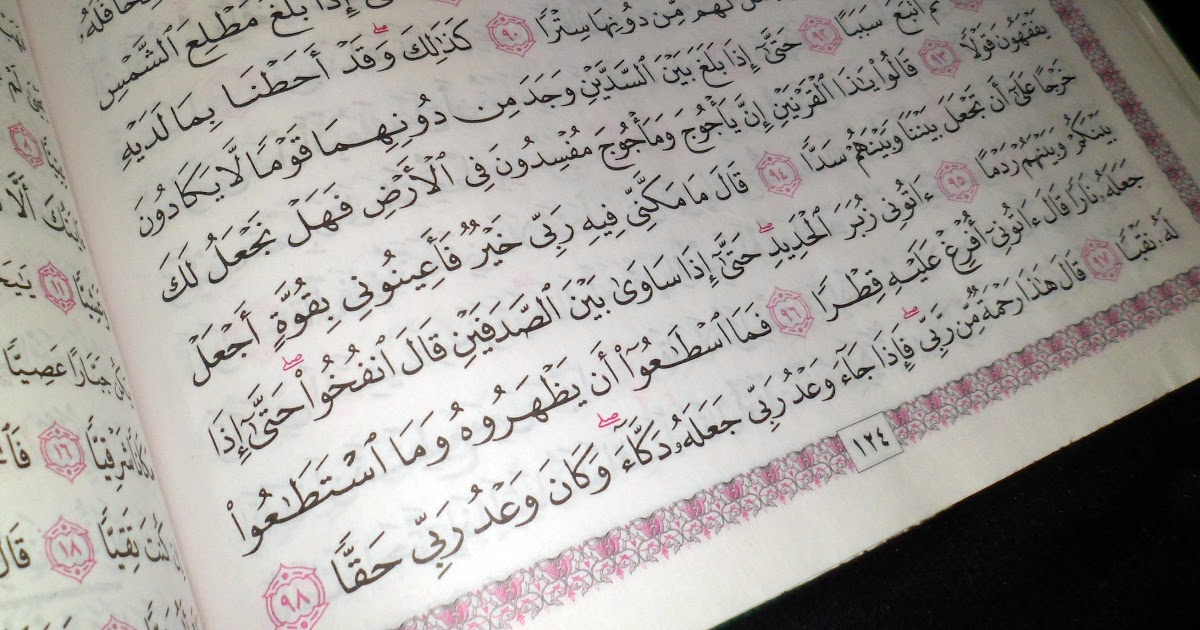 إِذَا بَلَغَ مَطْلِعَ ٱلشَّمْسِ
لَهُم مِّن دُونِهَا سِتْرًا ٩٠ كَذَٰلِكَ وَقَدْ أَحَطْنَا بِمَا لَدَيْهِ
ثُمَّ أَتْبَعَ سَبَبًا ٩٢ حَتَّىٰٓ إِذَا بَلَغَ بَيْنَ ٱلسَّدَّيْنِ وَجَدَ مِن دُونِهِمَا قَوْمًا لَّا يَكَادُونَ
يَفْقَهُونَ قَوْلًا ٩٣ قَالُوا۟ يَٰذَا ٱلْقَرْنَيْنِ إِنَّ يَأْجُوجَ وَمَأْجُوجَ مُفْسِدُونَ فِى ٱلْأَرْضِ فَهَلْ نَجْعَلُ لَكَ
خَرْجًا عَلَىٰٓ أَن تَجْعَلَ بَيْنَنَا وَبَيْنَهُمْ سَدًّا ٩٤ قَالَ مَا مَكَّنِّى فِيهِ رَبِّى خَيْرٌ فَأَعِينُونِى بِقُوَّةٍ أَجْعَلْ
بَيْنَكُمْ وَبَيْنَهُمْ رَدْمًا ٩٥ ءَاتُونِى زُبَرَ ٱلْحَدِيدِ ۖ حَتَّىٰٓ إِذَا سَاوَىٰ بَيْنَ ٱلصَّدَفَيْنِ قَالَ ٱنفُخُوا۟ ۖ حَتَّىٰٓ إِذَا
جَعَلَهُۥ نَارًا قَالَ ءَاتُونِىٓ أُفْرِغْ عَلَيْهِ قِطْرًا ٩٦ فَمَا ٱسْطَٰعُوٓا۟ أَن يَظْهَرُوهُ وَمَا ٱسْتَطَٰعُوا۟
لَهُۥ نَقْبًا ٩٧ قَالَ هَٰذَا رَحْمَةٌ مِّن رَّبِّى ۖ فَإِذَا جَآءَ وَعْدُ رَبِّى جَعَلَهُۥ دَكَّآءَ ۖ وَكَانَ وَعْدُ رَبِّى حَقًّا ٩٨
١٢٤
أَلَّا
١١
جَبَّارًا عَصِيًّا
شَرْقِيًّا ١٦
كُنتَ تَقِيًّا ١٨ قَالَ